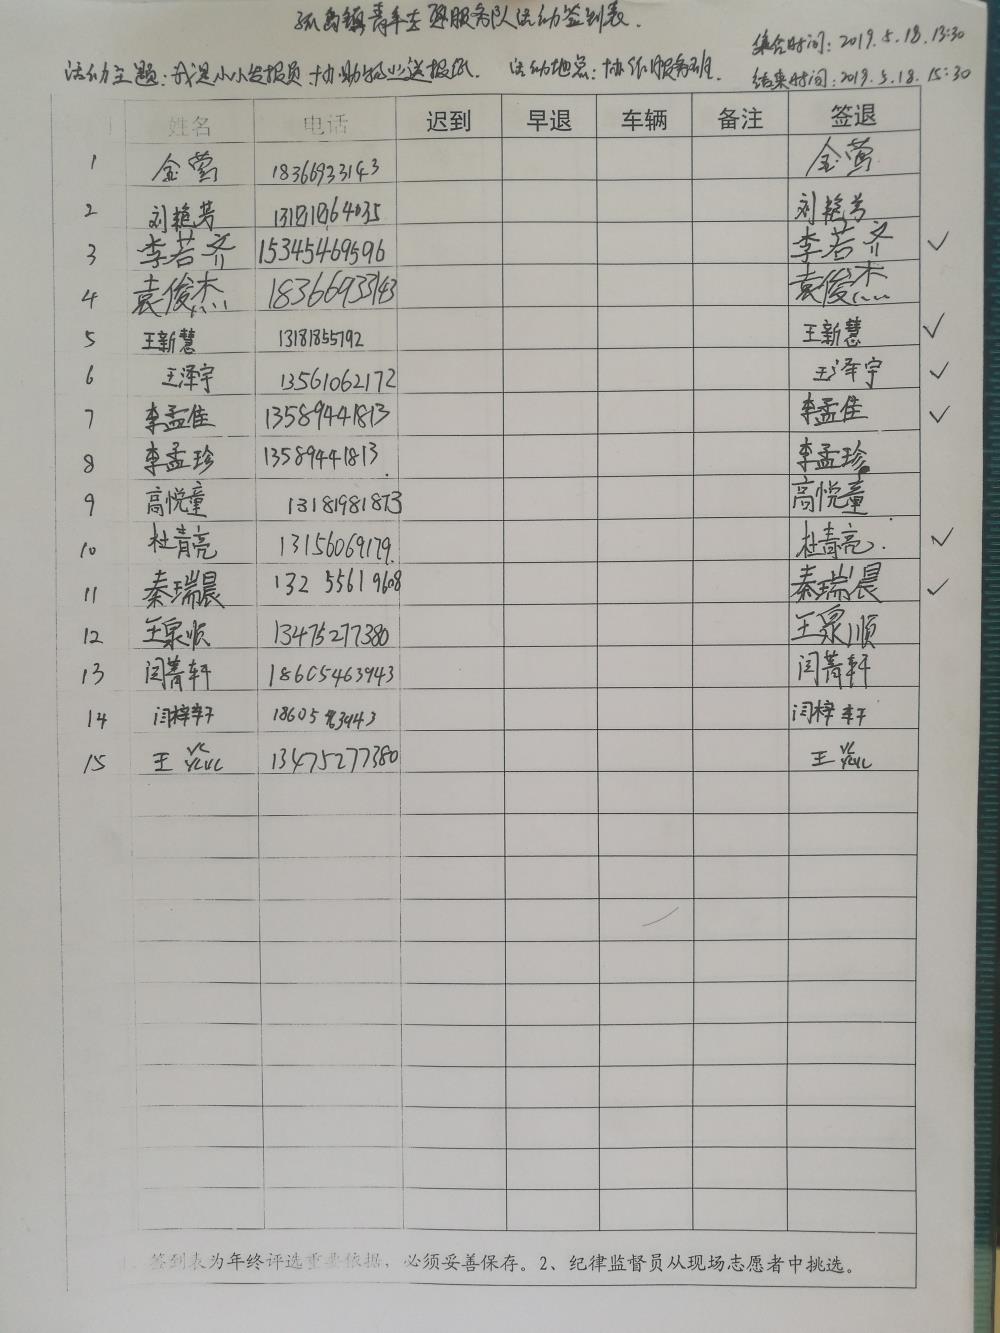 孤岛镇青年志愿服务队活动签到表.
集合时间: 2019.5.18.13:30
活动主题: 我是小小发报员 协助物业送报纸. 活动地点: 协作服务班.
结束时间: 2019.5.18.15:30
姓名 电话 迟到 早退 车辆 备注 签退
1 金莺 18366933143 金莺
2 刘艳芳 13181864035 刘艳芳
3 李若齐 15345469596 李若齐 ✓
4 袁俊杰 18366933143 袁俊杰
5 王新慧 13181855792 王新慧 ✓
6 王泽宇 13561062172 王泽宇 ✓
7 李孟佳 13589441813 李孟佳 ✓
8 李孟珍 13589441813. 李孟珍
9 高悦童 13181981873 高悦童
10 杜青亮 13156069179. 杜青亮. ✓
11 秦瑞晨 132 5561 9608 秦瑞晨 ✓
12 王泉顺 13475277380 王泉顺
13 闫菁轩 18605463943 闫菁轩
14 闫梓轩 18605463943 闫梓轩
15 王 13475277380 王
签到表为年终评选重要依据，必须妥善保存。2、纪律监督员从现场志愿者中挑选。